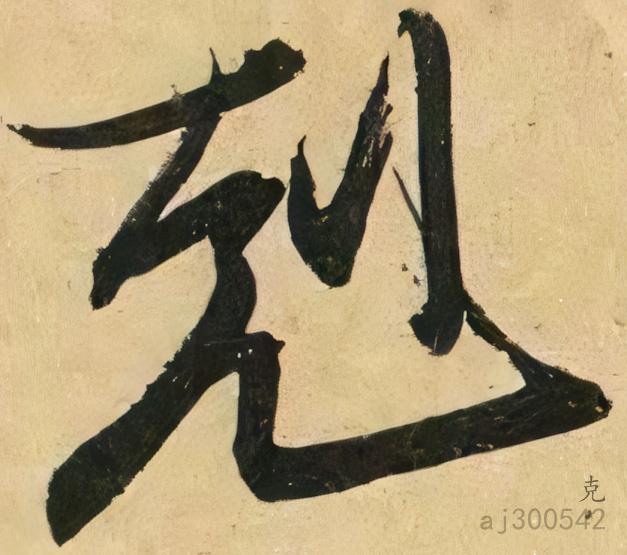 剋
克
aj300542